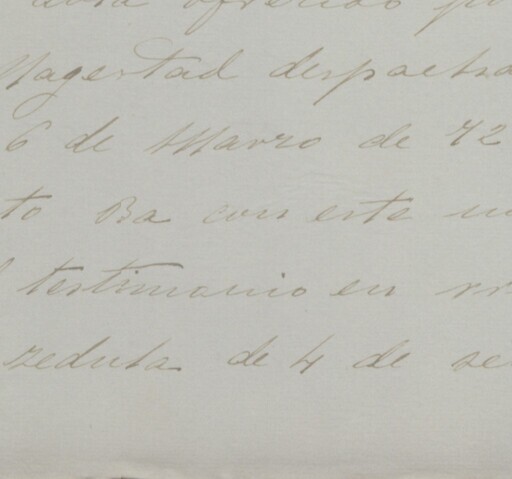 ofrecido
Magestad despacha
6 de Marzo de 72
to Ba con este
testimonio en
zedula de 4 de se